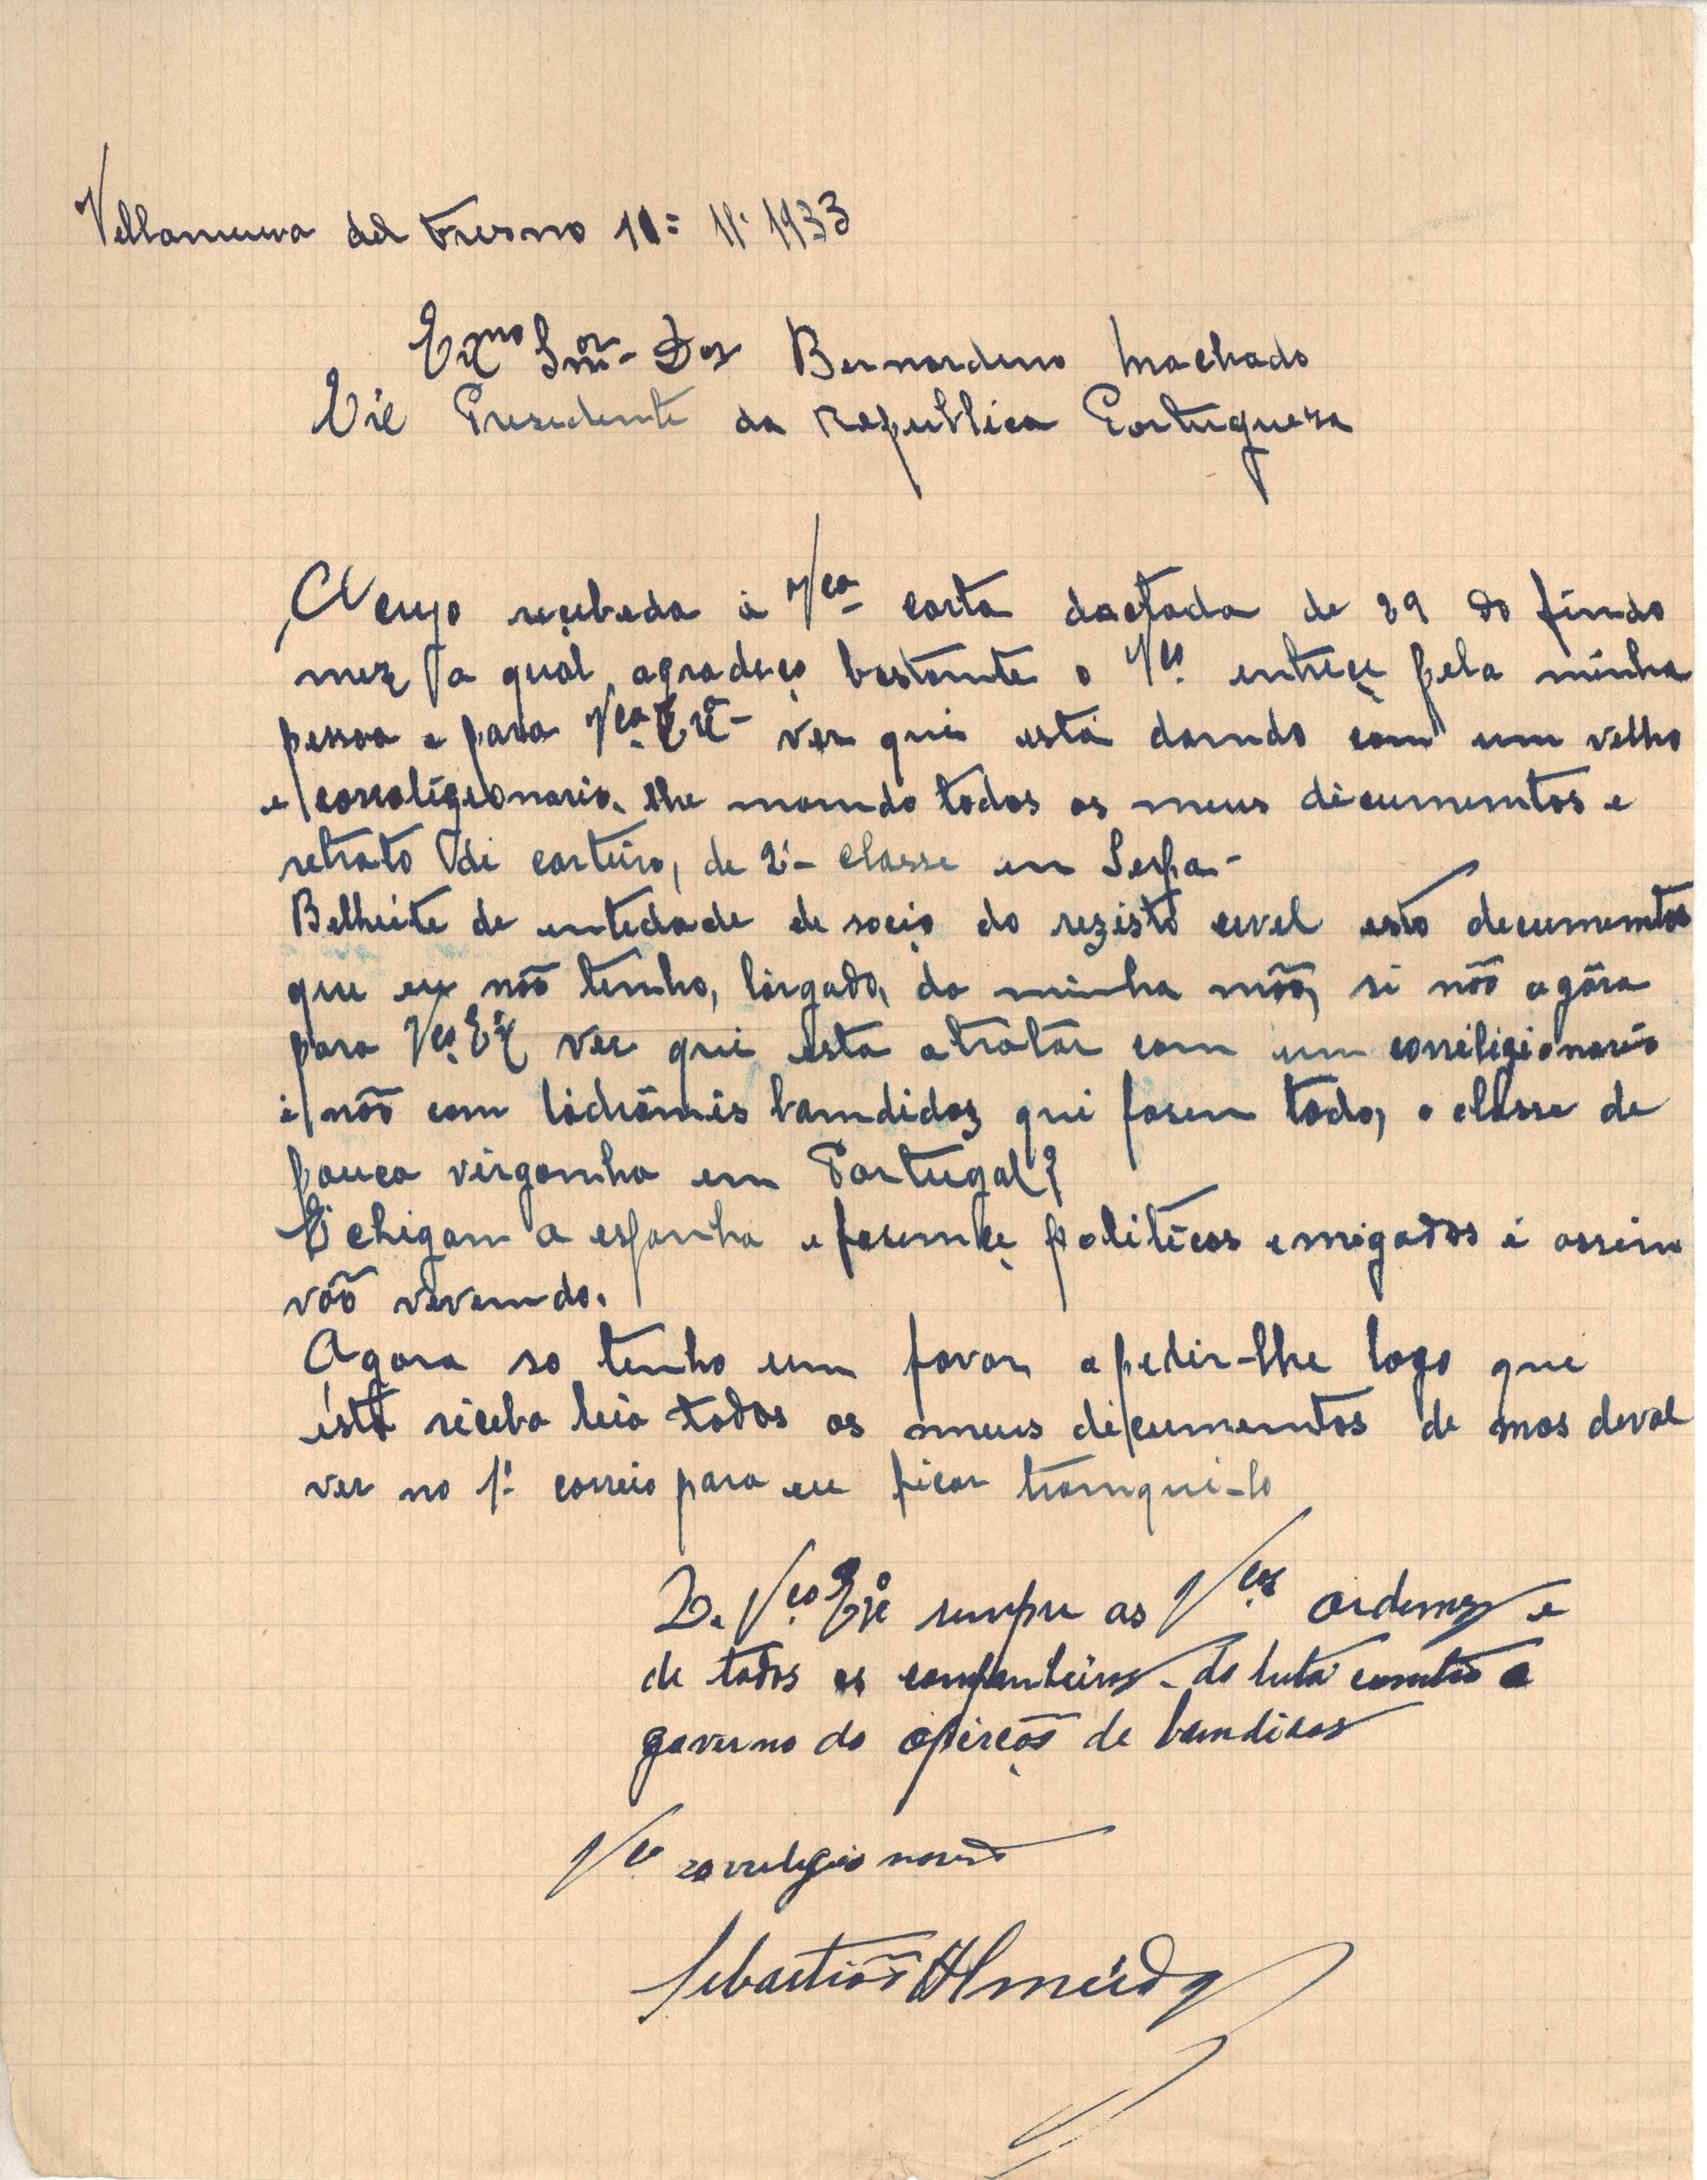 Vellanueva del Fresno 11= 11· 1933
Exmo Snr- Dor Bernardeno Machado
Eix Presedente da Republica Portugueza
Acuzo reçubeda a Vca carta dactada de 29 do findo
mez a qual agradeço bastante o Vço entreçe pela minha
pessoa e para Vça Exª ver que está dando com um velho
e correligionario. lhe mando todos os meus dicumentos e
retrato di carteiro, de 2ª classe em Serpa-
Belheite de entedade de socio do rezisto cevel esto decumentos
que eu não tenho, lárgado, da minha mão, si não agóra
para Vça Exª ver qui esta atratar com um correligionario
i não com ládrõmis bandidos qui fasem todo, a classe de
pouca virgonha em Portugal?
E chigam a espanha e fasemçe politicos emigados i assim
vão vevendo.
Agora so tenho um favor apedir-lhe logo que
ésta riceba leia todos os meus dicumentos de mos devol
ver no 1º correio para eu ficar tranqui-lo
De Vça Exª sempre as Vças ordems e
de todos os companheiros da luta contra o
governo do opireçõs de bandidos
Vço correlegionario
Sebastião Almeida